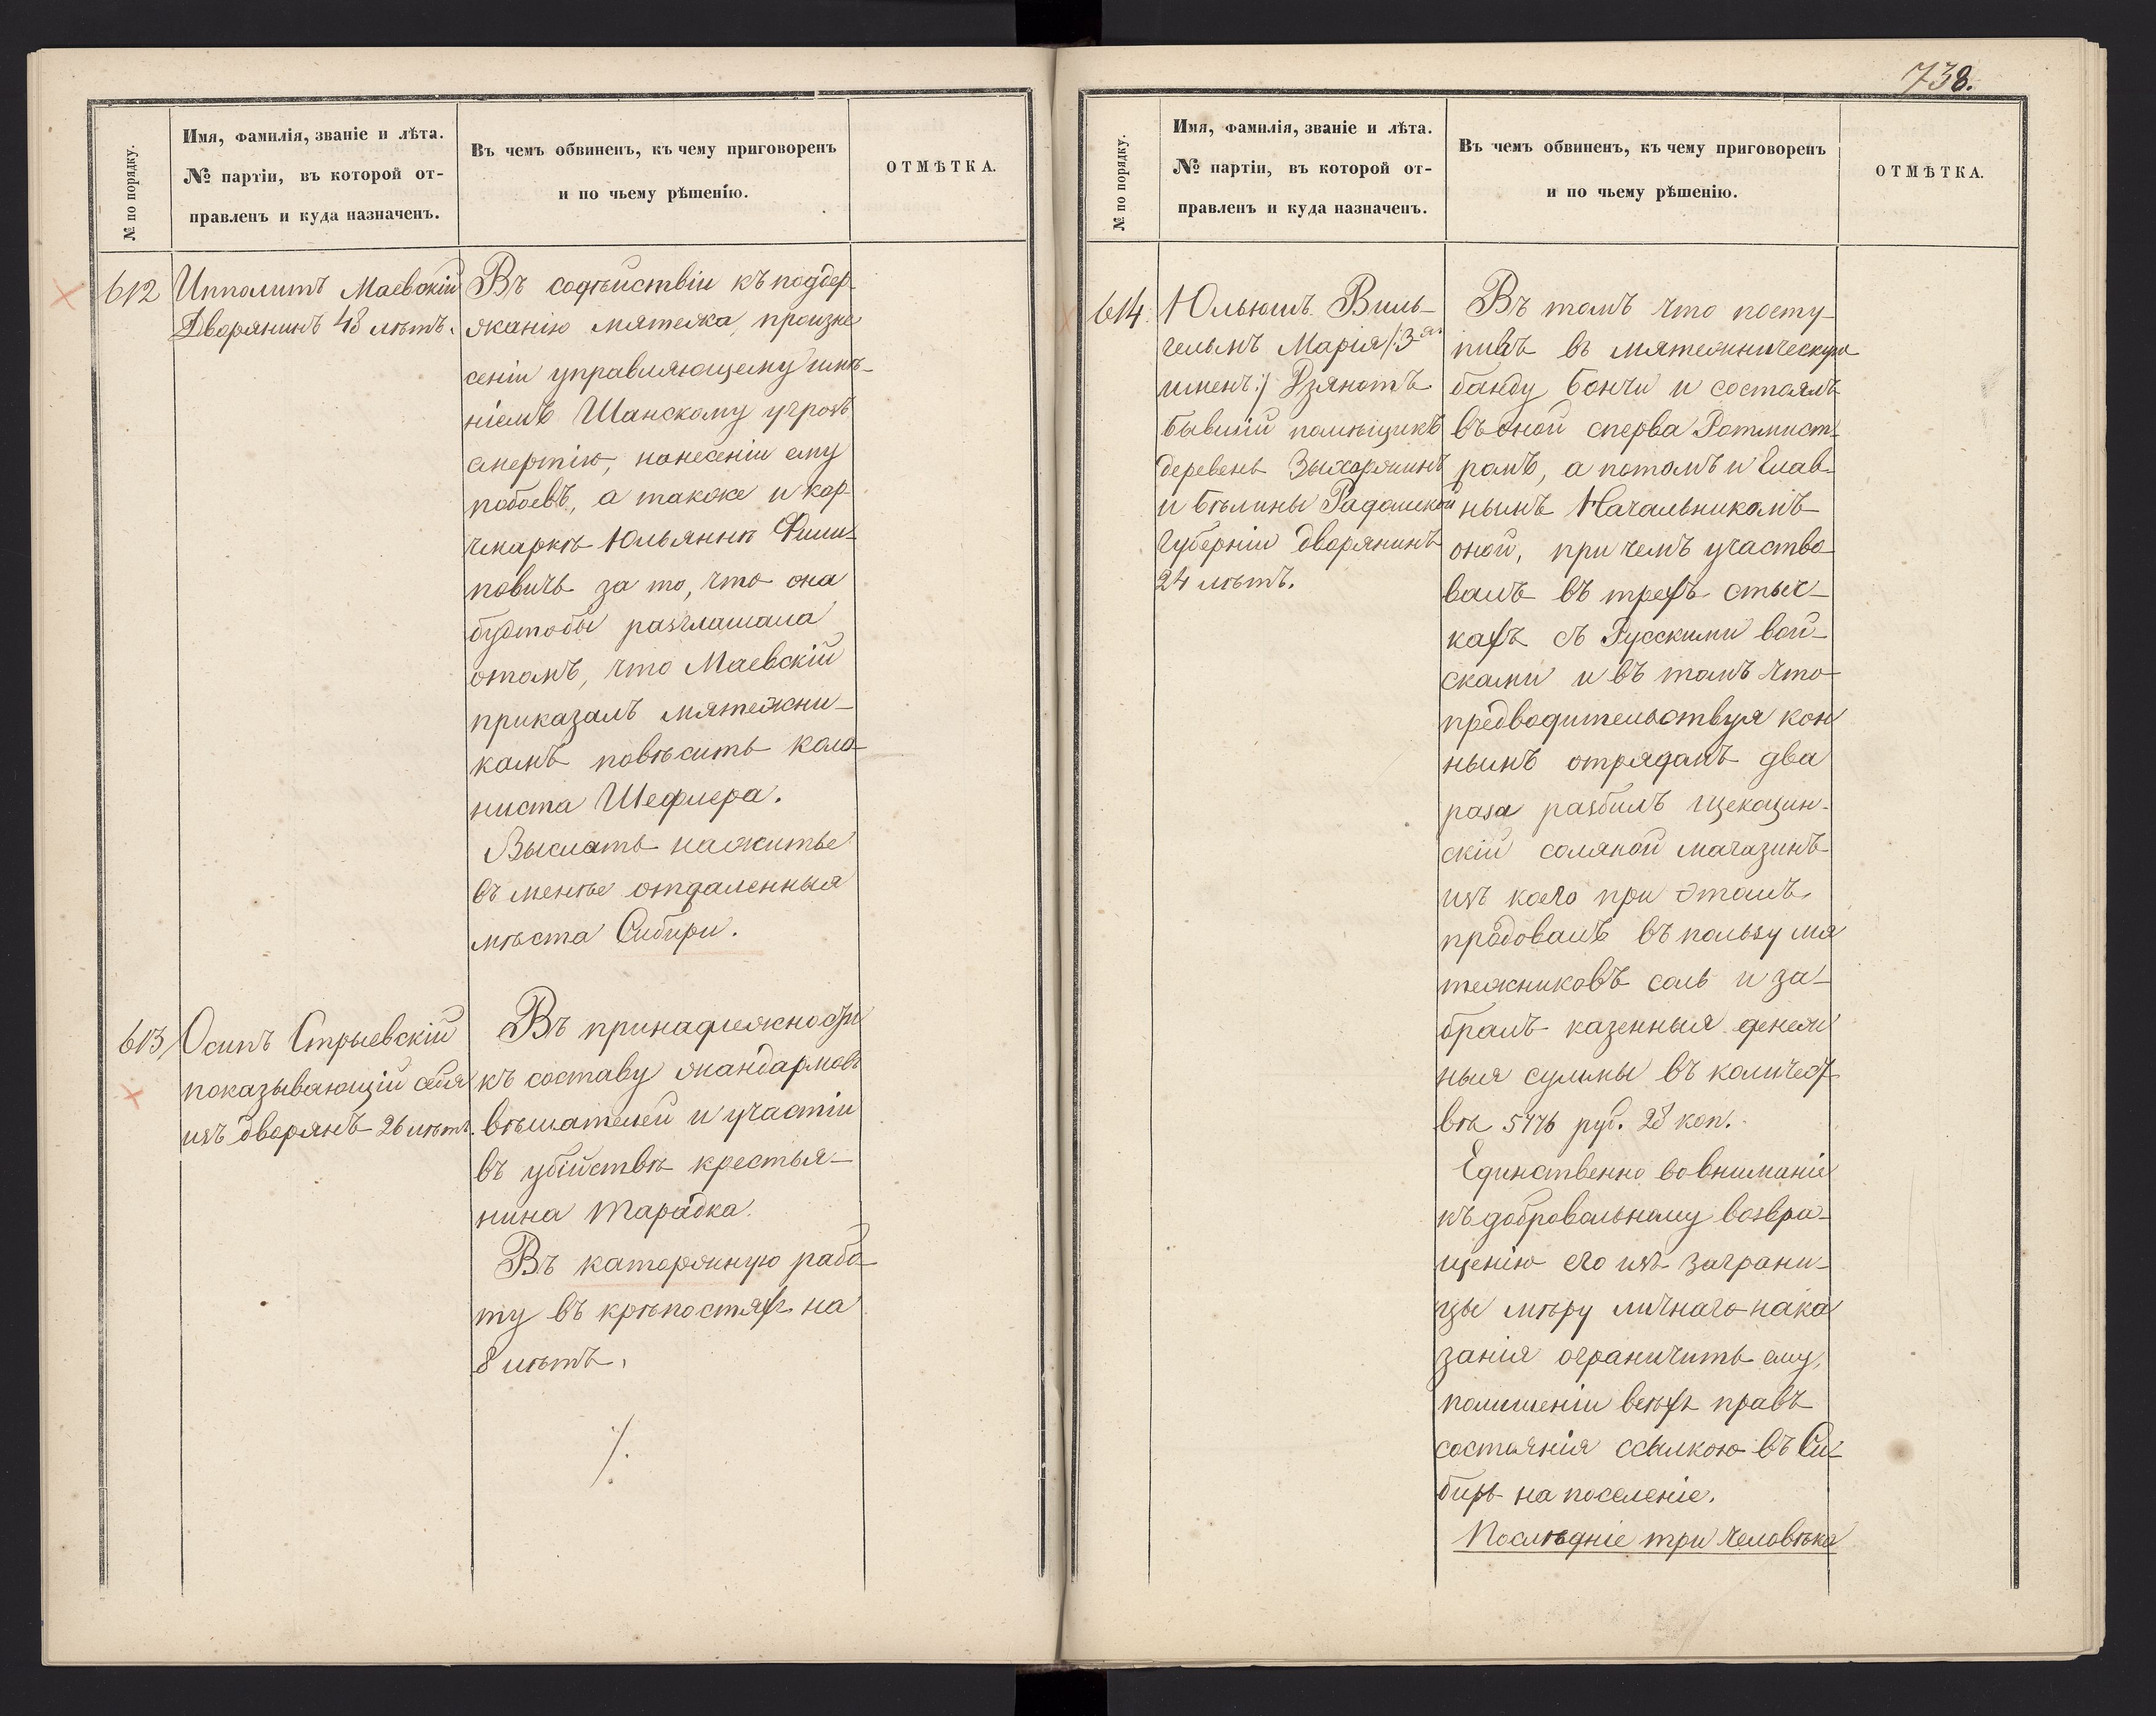 738.
№ по порядку.
Имя, фамилія, званіе и лѣта.
№ партіи, въ которой от-
правленъ и куда назначенъ.
Въ чемъ обвиненъ, къ чему приговоренъ
и по чьему рѣшенію.
ОТМѢТКА.
612 Ипполитъ Маевскій
Дворянинъ 48 лѣтъ.
Въ содѣйствіи къ поддер-
жанію мятежа, произне
сеніи управляющему имѣ-
ніемъ Шанскому угрозъ
смертію, нанесеніи ему
побоевъ, а также и кор-
чмаркѣ Юльяннѣ Фили-
повичъ за то, что она
будтобы разглашала
отомъ, что Маевскій
приказалъ мятежни-
камъ повѣсить коло-
ниста Шефлера.
Выслать нажитье
въ менѣе отдаленныя
мѣста Сибири.
613 Осипъ Стрыевскій
показывающій себя
изъ дворянъ 26 лѣтъ.
Въ принадлежности
къ составу жандармовъ
вѣшателей и участіи
въ убійствѣ крестья-
нина Тарадка.
Въ каторжную рабо-
ту въ крѣпостяхъ на
8 лѣтъ.
№ по порядку.
Имя, фамилія, званіе и лѣта.
№ партіи, въ которой от-
правленъ и куда назначенъ.
Въ чемъ обвиненъ, къ чему приговоренъ
и по чьему рѣшенію.
ОТМѢТКА.
614 Юльюшъ Виль-
гельмъ Марія /:3хъ
именъ:/ Дзянотъ
бывшій помѣщикъ
деревень
и Бѣлины Радомской
Губерніи дворянинъ
24 лѣтъ.
Въ томъ что посту-
пивъ въ мятежническую
банду Бончи и состоялъ
въ оной сперва Ротмист-
ромъ, а потомъ и Глав-
нымъ Начальникомъ
оной, при чемъ участво
валъ въ трехъ стыч-
кахъ съ Русскими вой-
сками и въ томъ что
предводительствуя кон
нымъ отрядомъ два
раза разбилъ Щекоцин-
скій соляной магазинъ
изъ коего при этомъ
продовалъ въ пользу мя
тежниковъ соль и за-
бралъ казенныя денеж
ныя суммы въ количест
вѣ руб. 28 коп.
Единственно во вниманіе
къ добровольному возвра-
щенію его изъ заграни-
цы мѣру личнаго нака
занія ограничить ему,
полишеніи всѣхъ правъ
состоянія ссылкою въ Си-
бирь на поселеніе.
Послѣдніе три человѣка